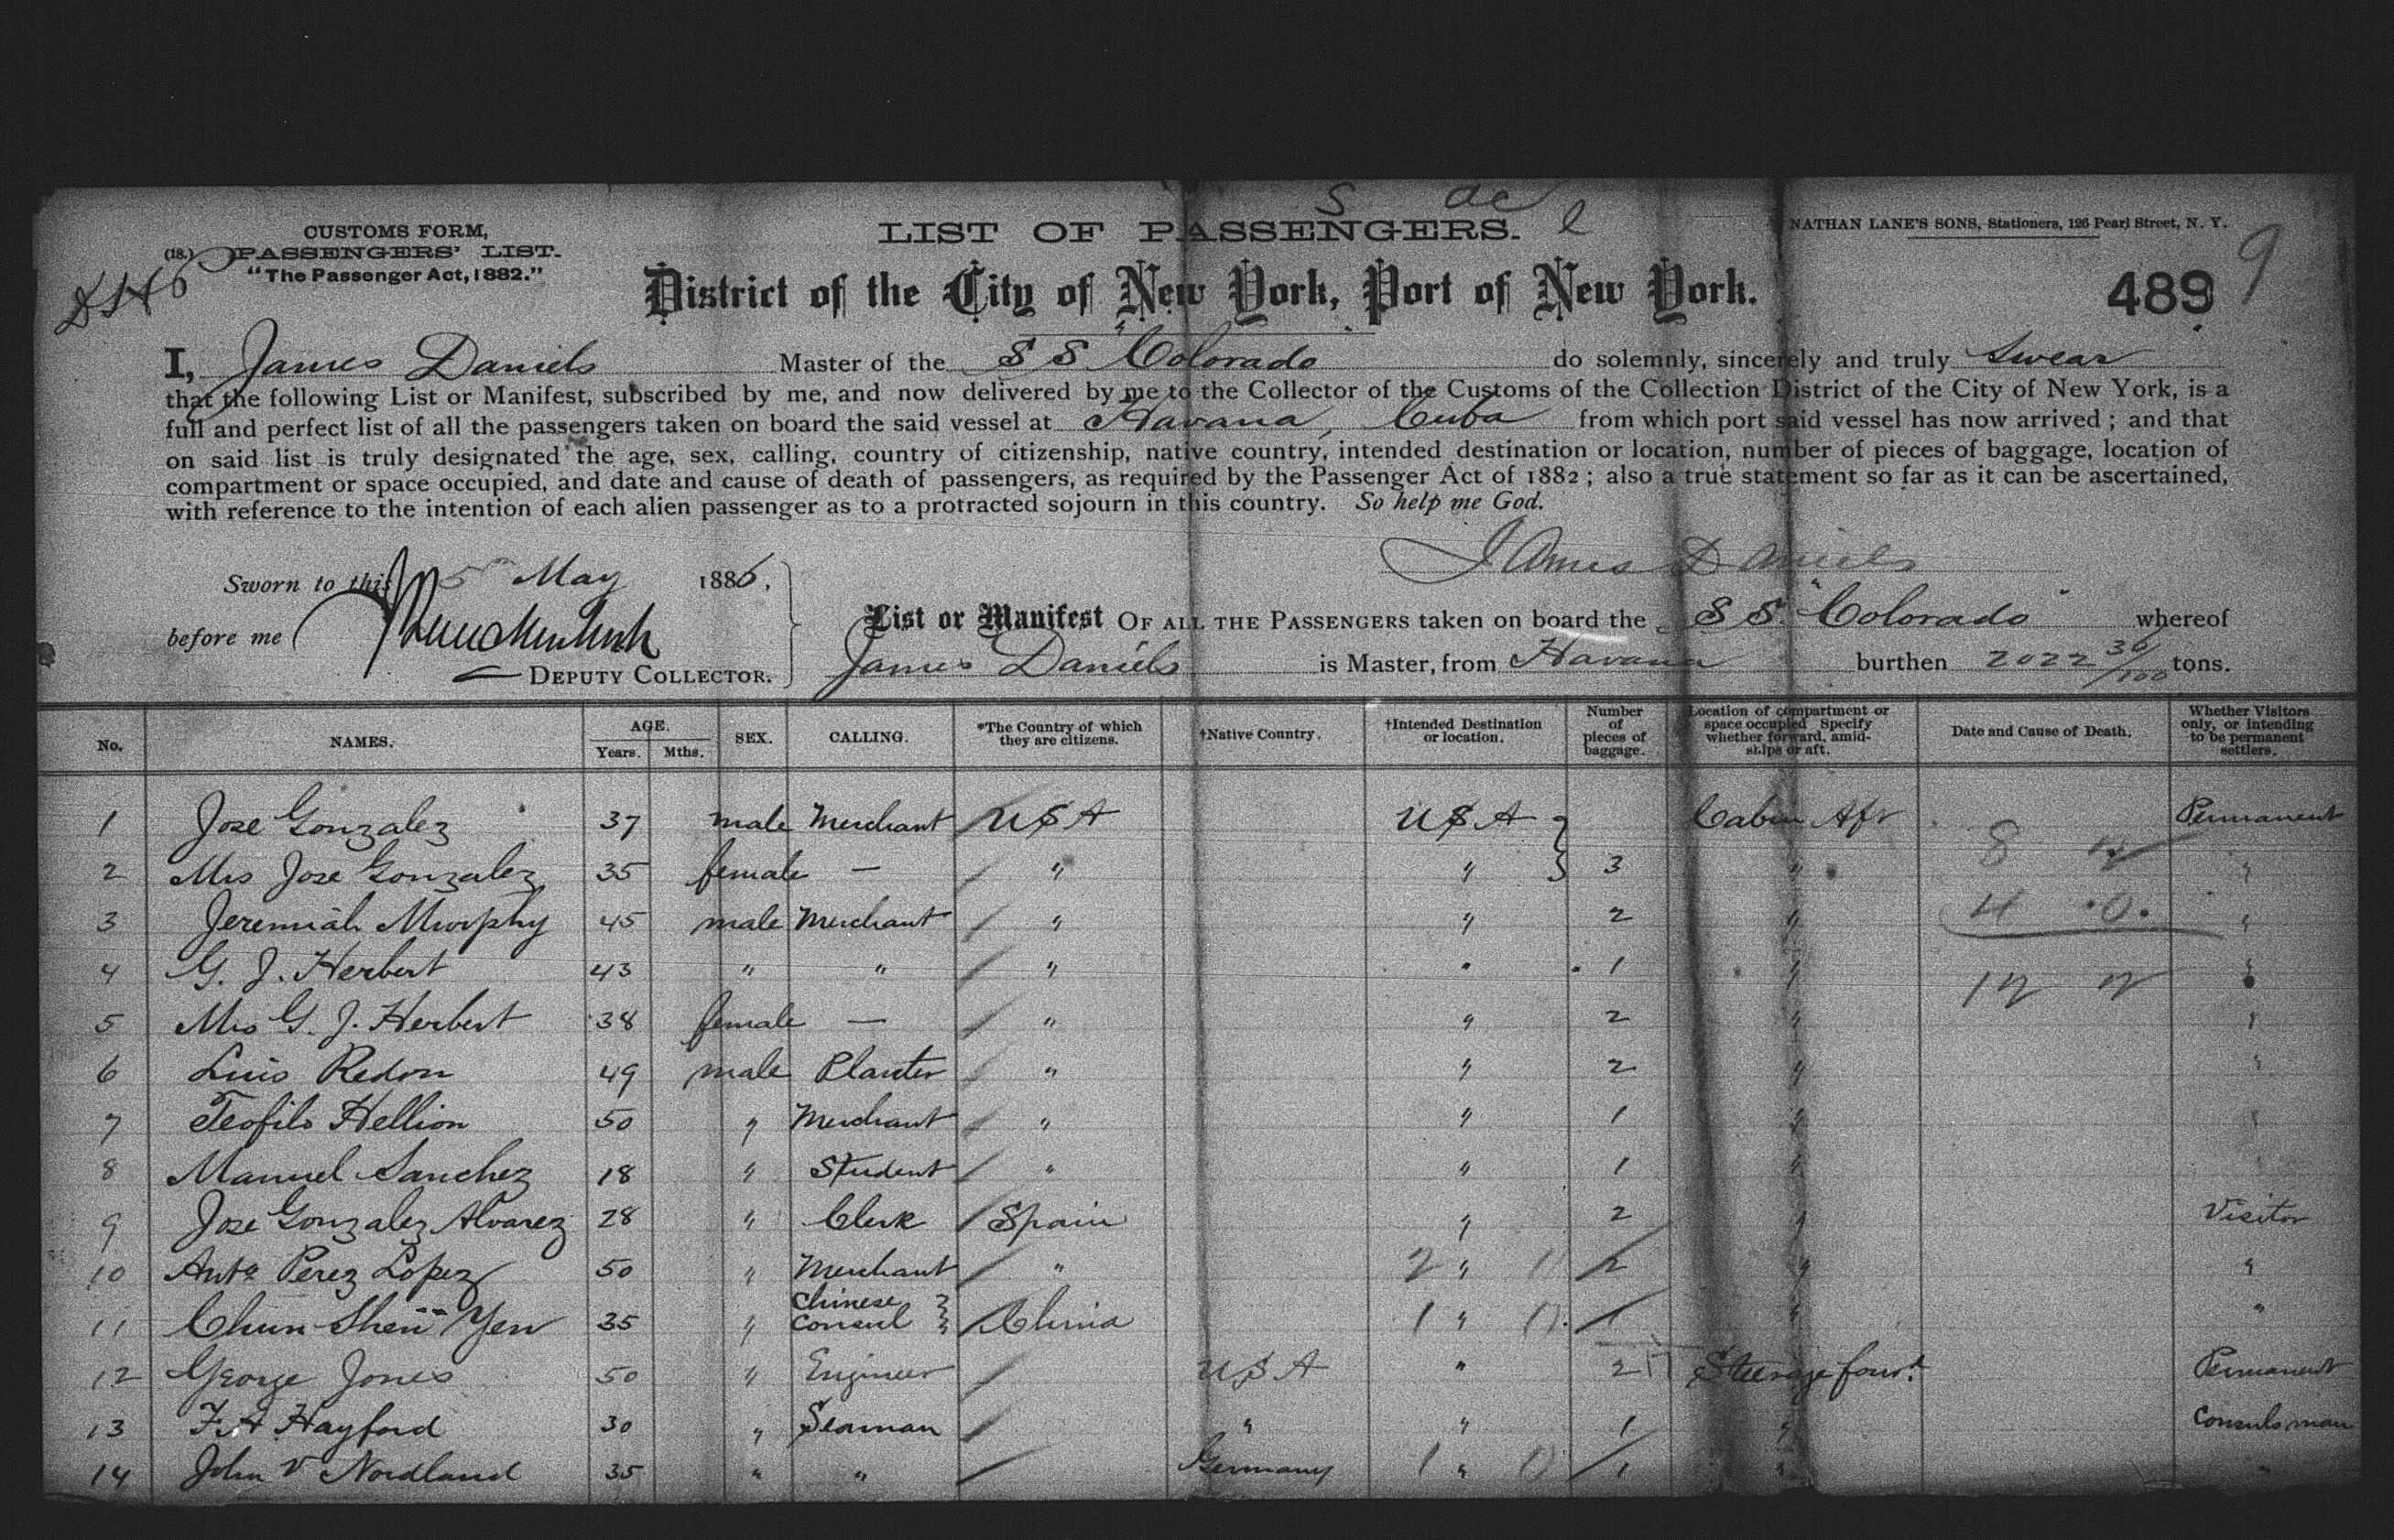 S de l
CUSTOMS FORM,
(18.) PASSENGERS' LIST.
"The Passenger Act, 1882."
LIST OF PASSENGERS.
NATHAN LANE'S SONS, Stationers, 126 Pearl Street, N. Y.
District of the City of New York, Port of New York.
489 9
I, James Daniels Master of the SS "Colorado do solemnly, sincerely and truly swear
that the following List or Manifest, subscribed by me, and now delivered by me to the Collector of the Customs of the Collection District of the City of New York, is a
full and perfect list of all the passengers taken on board the said vessel at Havana, Cuba from which port said vessel has now arrived; and that
on said list is truly designated the age, sex, calling, country of citizenship, native country, intended destination or location, number of pieces of baggage, location of
compartment or space occupied, and date and cause of death of passengers, as required by the Passenger Act of 1882; also a true statement so far as it can be ascertained,
with reference to the intention of each alien passenger as to a protracted sojourn in this country. So help me God.
James Daniels
Sworn to this 5 May 1886.
before me
DEPUTY COLLECTOR.
List or Manifest OF ALL THE PASSENGERS taken on board the SS. "Colorado" whereof
James Daniels is Master, from Havana burthen 2022 36/100 tons.
No. NAMES. AGE. Years. Mths. SEX. CALLING. *The Country of which they are citizens. †Native Country. †Intended Destination or location. Number of pieces of baggage. Location of compartment or space occupied Specify whether forward, amidships or aft. Date and Cause of Death. Whether Visitors only, or intending to be permanent settlers.
1 Jose Gonzalez 37 male Merchant USA USA Cabin Aft Permanent
2 Mrs Jose Gonzalez 35 female — " " 3 " "
3 Jeremiah Murphy 45 male Merchant " " 2 " "
4 G. J. Herbert 43 " " " " 1 " "
5 Mrs G. J. Herbert 38 female — " " 2 " "
6 Luis Redon 49 male Planter " " 2 " "
7 Teofilo Hellion 50 " Merchant " " 1 " "
8 Manuel Sanchez 18 " Student " " 1 "
9 Jose Gonzalez Alvarez 28 " Clerk Spain " 2 " Visitor
10 Anto Perez Lopez 50 " Merchant " 2 " 2 " "
11 Chun Shen Yen 35 " Chinese Consul China 1 " 1 " "
12 George Jones 50 " Engineer USA " 2 Steerage forwd. Permanent
13 F. A Hayford 30 " Seaman " " 1 " Consuls man
14 John V Nordland 35 " " Germany 1 " 1 " "